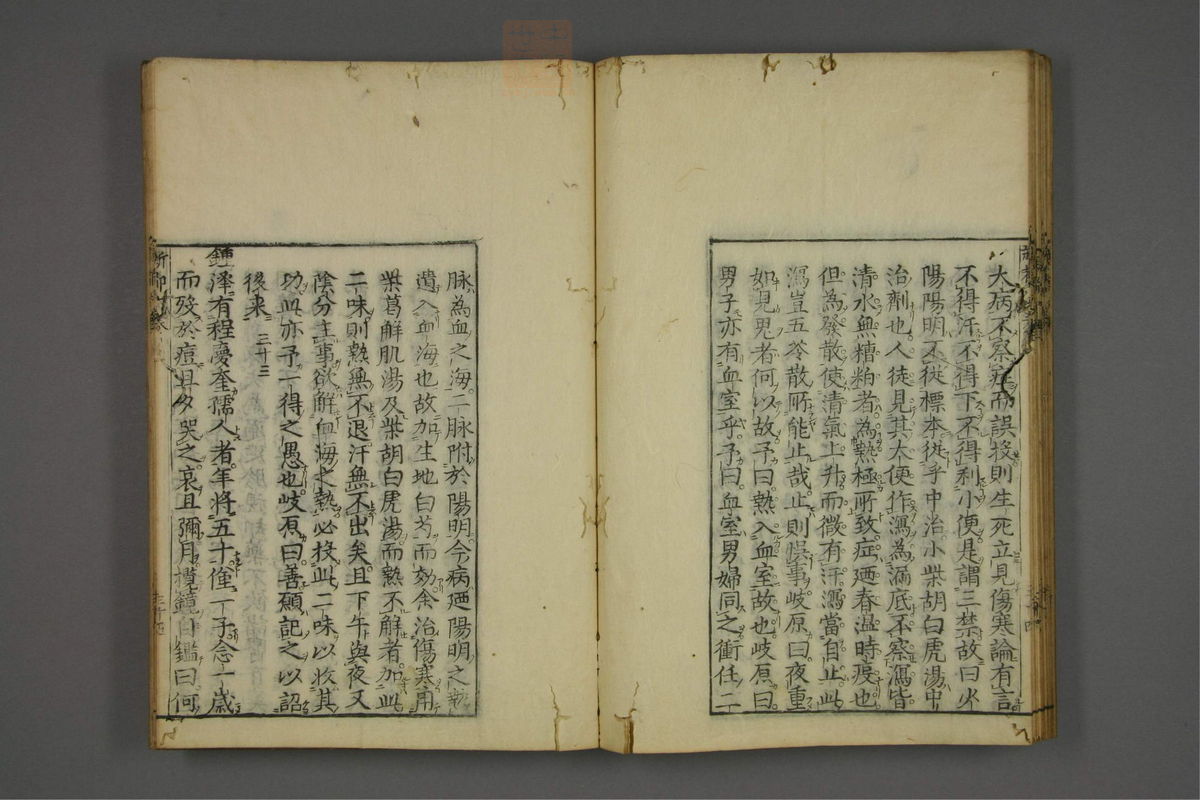 大病不察症而誤投則生死立見傷寒論有言
不得汗不得下不得利小便是謂三禁故曰少
陽陽明不從標本從乎中治小柴胡白虎湯中
治劑也人徒見其大便作瀉為漏底不察瀉皆
清水無糟粕者為熱極所致症廼春温時疫也
但為發散使清氣上升而微有汗瀉當自止此
瀉豈五苓散所能止哉止則悞事岐原曰夜重
如見鬼者何以故予曰熱入血室故也岐原曰
男子亦有血室乎予曰血室男婦同之衝任二
脉為血之海二脉附於陽明今病廼陽明之熱
遺入血海也故加生地白芍而効余治傷寒用
柴葛解肌湯及柴胡白虎湯而熱不解者加此
二味則熱無不退汗無不出矣且下午與夜又
陰分主事欲解血海之熱必投此二味以收其
功此亦予一得之愚也岐原曰善願記之以詔
後来 三十三
鍾澤有程慶奎孺人者年將五十僅一子念一歲
而殁於痘旦夕哭之哀且彌月攬鏡自鑑曰何